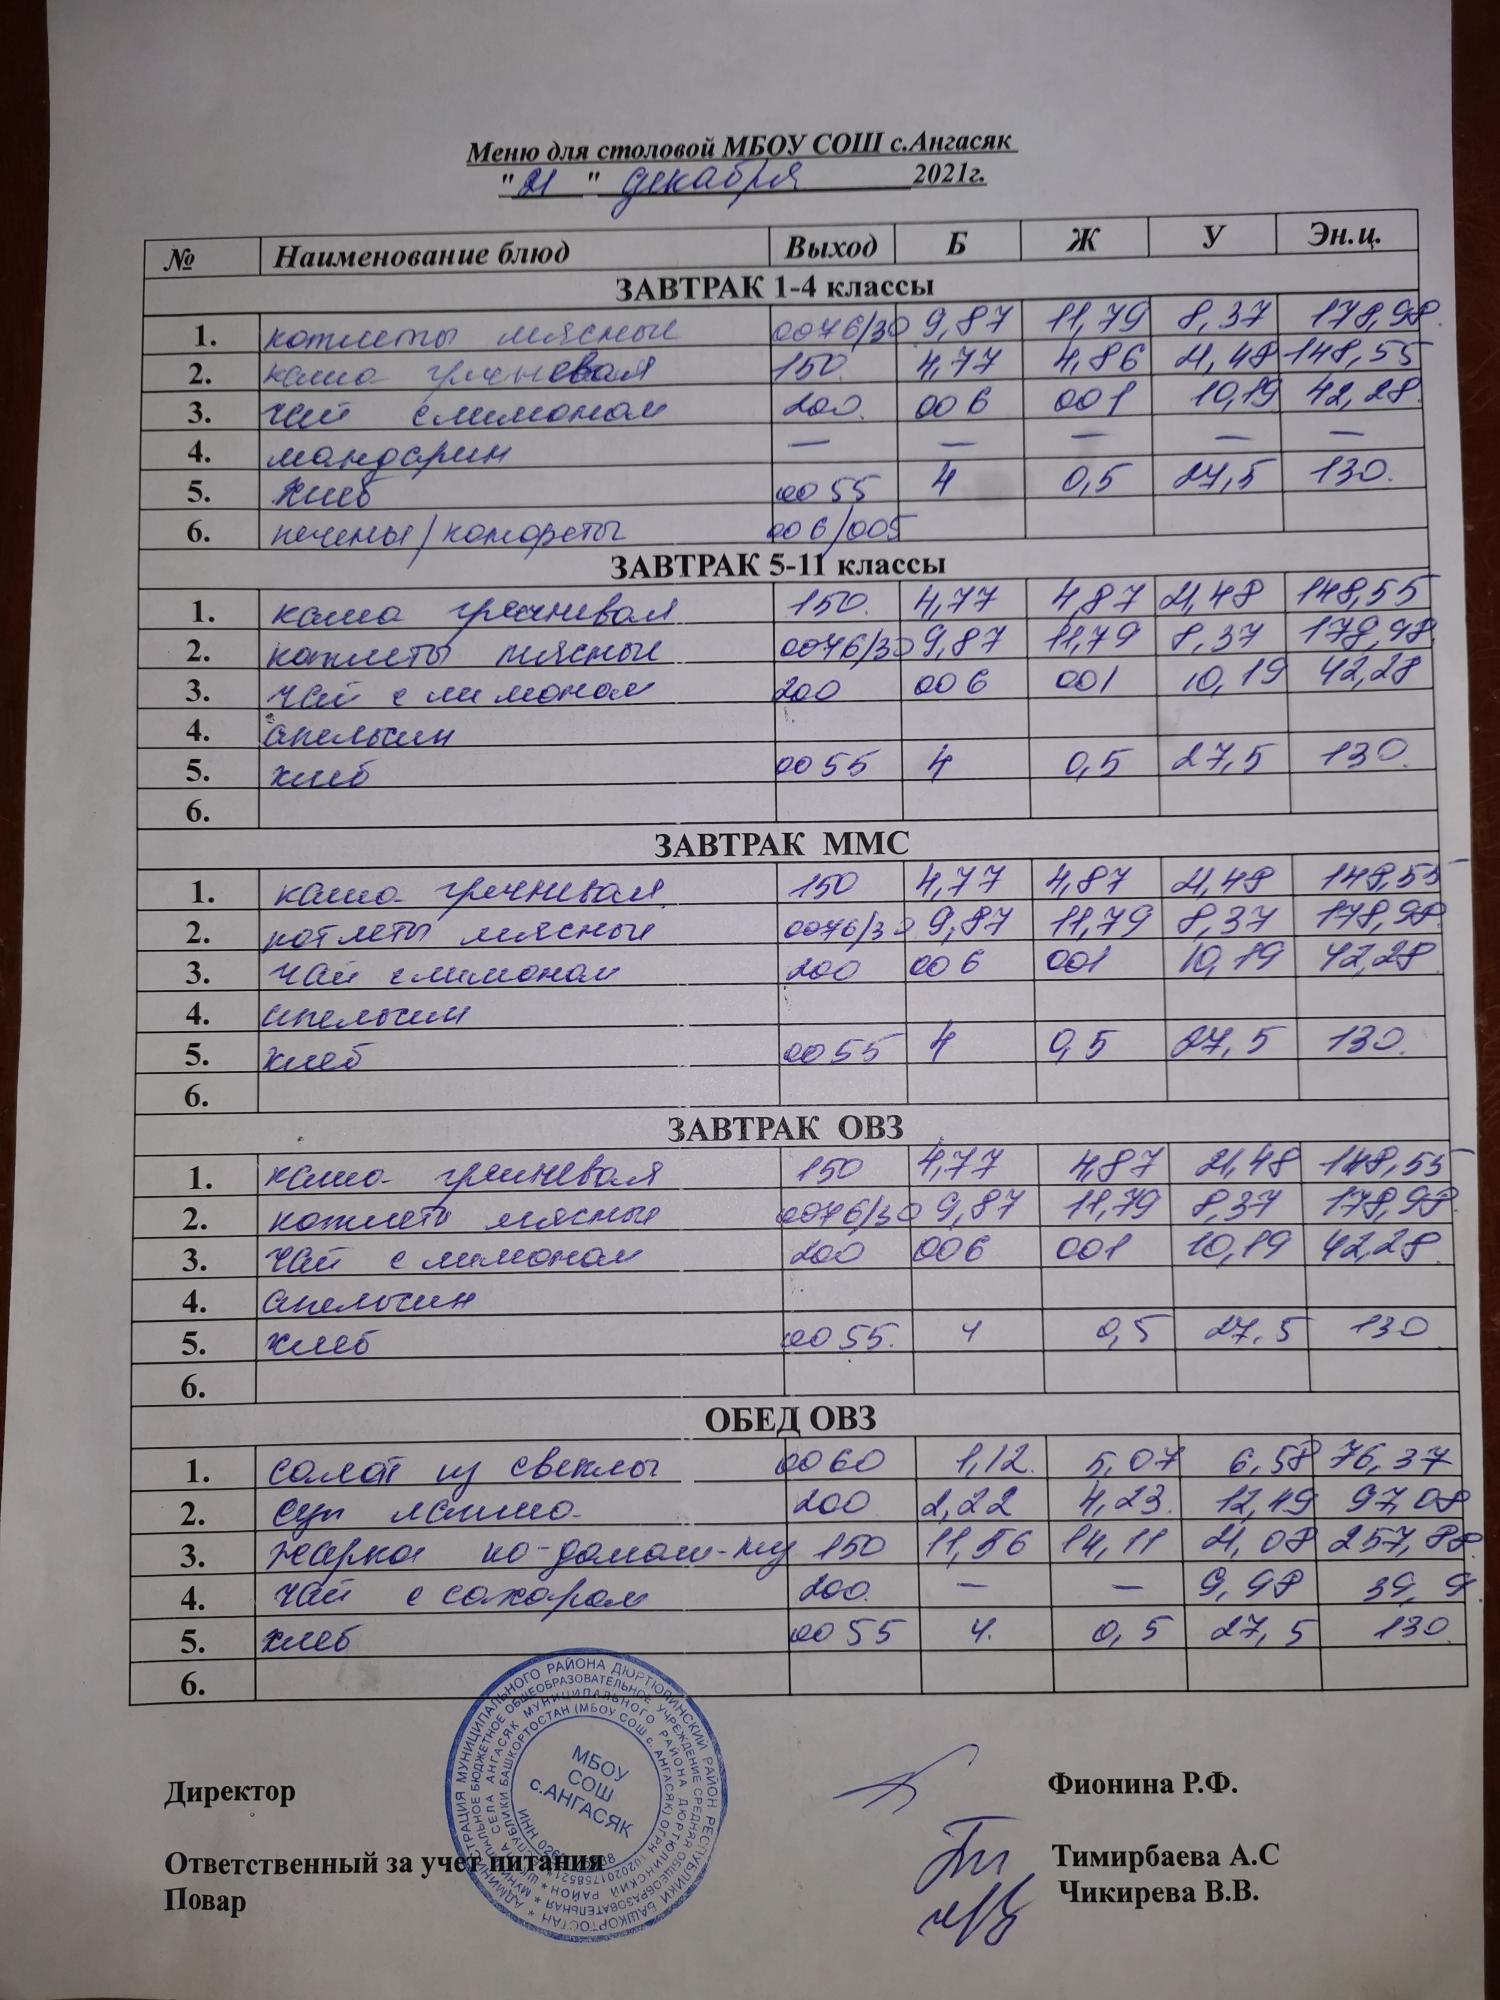 Меню для столовой МБОУ СОШ с.Ангасяк
"21" декабря 2021г.
№ Наименование блюд Выход Б Ж У Эн.ц.
ЗАВТРАК 1-4 классы
1. котлеты мясные 0076/30 9,87 11,79 8,37 178,98.
2. каша гречневая 150. 4,77 4,86 21,48 148,55
3. чай с лимоном 200. 006 001 10,19 42,28.
4. мандарин — — — — —
5. Хлеб 0055 4 0,5 27,5 130.
6. печенье/конфеты 006/005
ЗАВТРАК 5-11 классы
1. каша гречневая 150. 4,77 4,87 21,48 148,55
2. котлеты мясные 0076/30 9,87 11,79 8,37 178,98.
3. чай с лимоном 200 006 001 10,19 42,28
4. апельсин
5. хлеб 0055 4 0,5 27,5 130.
6.
ЗАВТРАК ММС
1. каша гречневая 150 4,77 4,87 21,48 148,55
2. котлеты мясные 0076/30 9,87 11,79 8,37 178,98
3. чай с лимоном 200 006 001 10,19 42,28
4. апельсин
5. хлеб 0055 4 0,5 27,5 130.
6.
ЗАВТРАК ОВЗ
1. каша гречневая 150 4,77 4,87 21,48 148,55
2. котлеты мясные 0076/30 9,87 11,79 8,37 178,98
3. чай с лимоном 200 006 001 10,19 42,28
4. апельсин
5. хлеб 0055. 4 0,5 27,5 130
6.
ОБЕД ОВЗ
1. салат из свеклы 0060 1,12. 5,07 6,58 76,37
2. суп лапша 200 2,22 4,23. 12,49 97,08
3. жаркое по-домаш-му 150 11,56 14,11 21,08 257,88
4. чай с сахаром 200. — — 9,98 39,9
5. хлеб 0055 4. 0,5 27,5 130
6.
МБОУ
СОШ
с.АНГАСЯК
Директор Фионина Р.Ф.
Ответственный за учет питания Тимирбаева А.С
Повар Чикирева В.В.